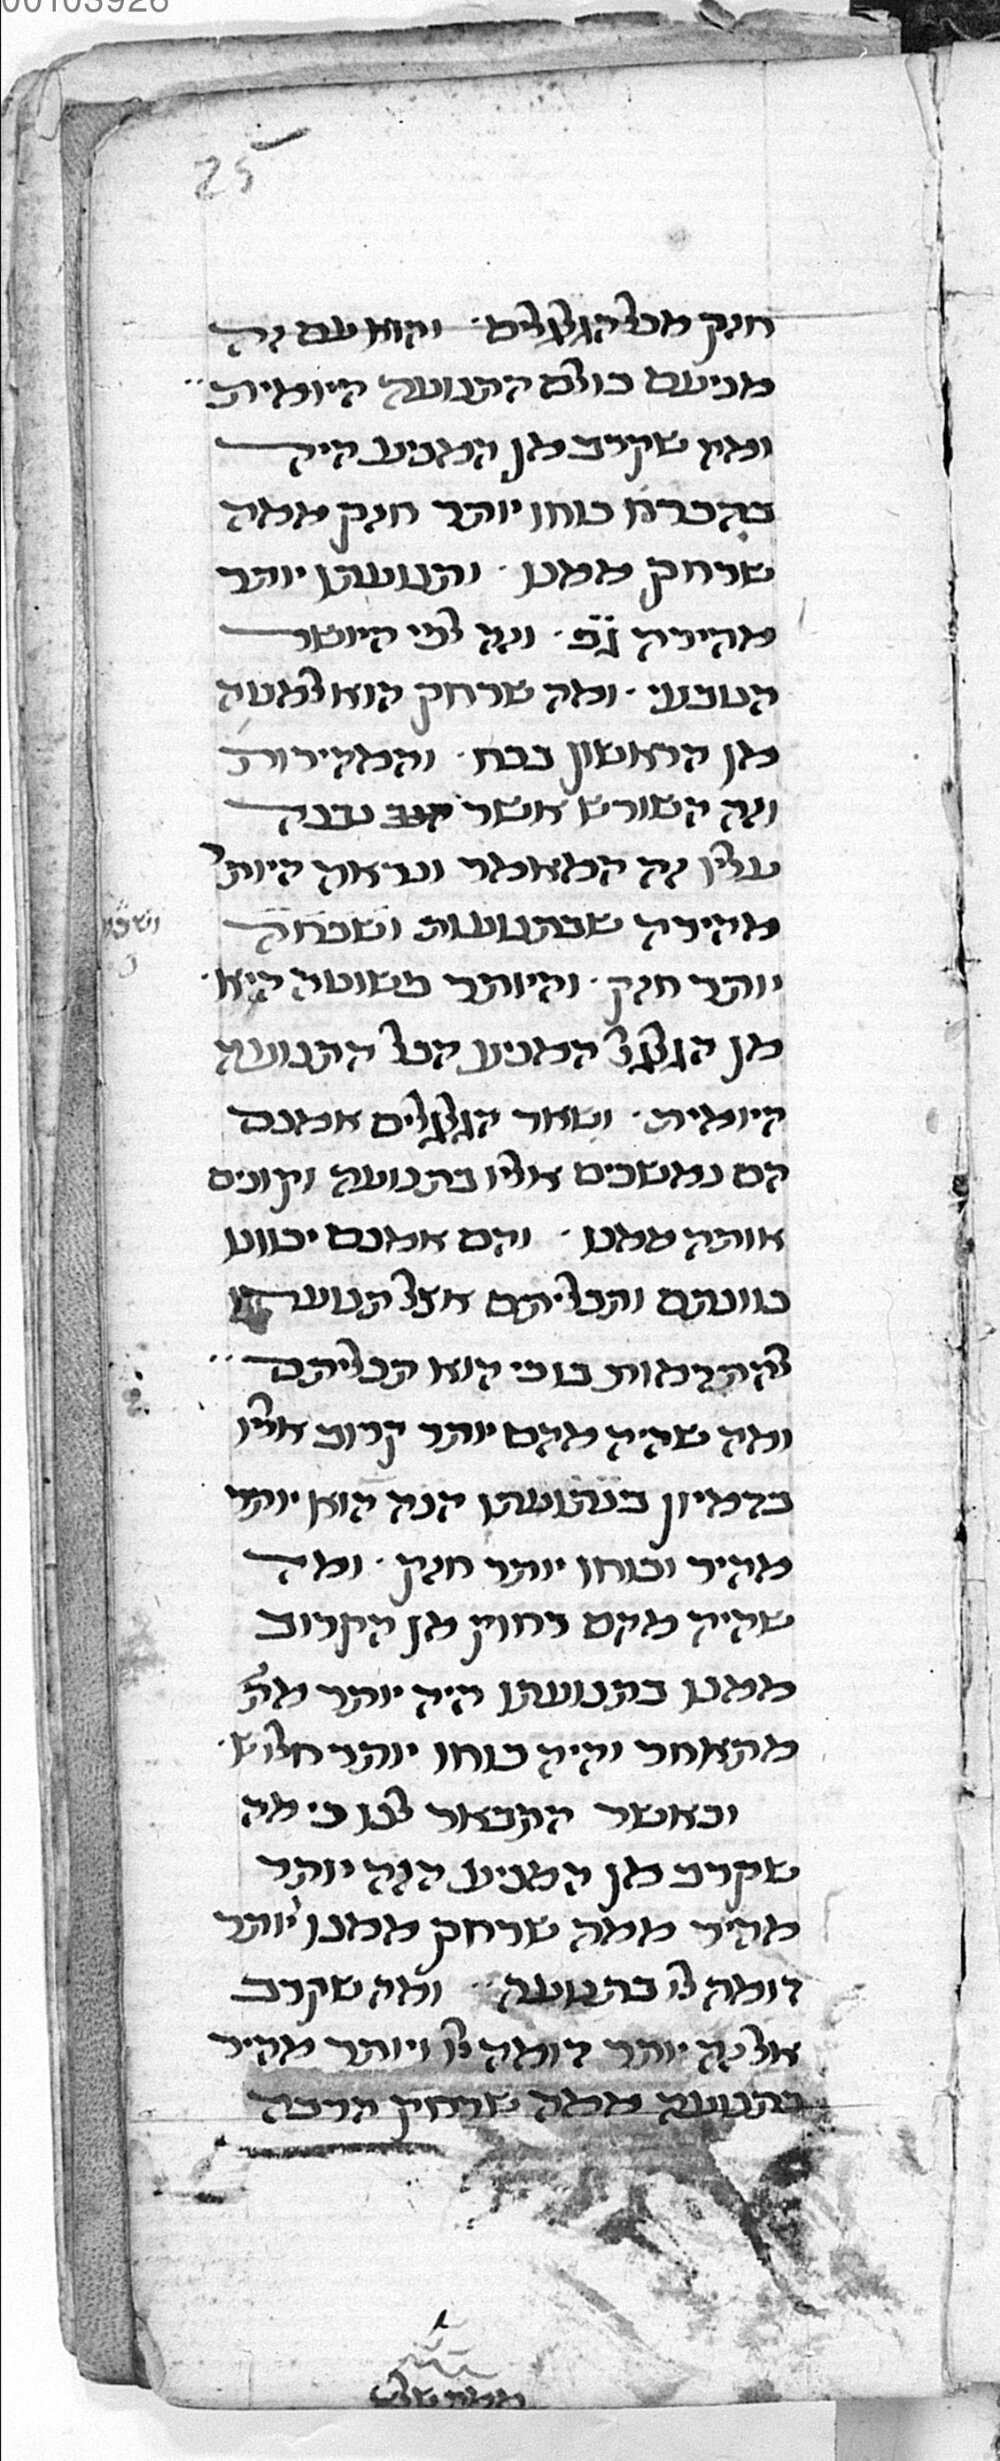 00103926
25
חזק מכל הגלגלים · והוא עם זה
מניעם כולם התנועה היומית
ומה שקרב מן המניע היה
בהכרח כוחו יותר חזק ממה
שרחק ממנו · ותנועתו יותר
מהירה ג״כ · וזה לפי היושר
הטבעי · ומה שרחק הוא למטה
מן הראשון בכח · והמהירות
וזה השורש אשר נבנה
עליו זה המאמר ונראה היות
מהירה שבתנועות ושכחה
יותר חזק · והיותר פשוטה היא ·
מן הגלגל המניע הכל התנועה
היומית · ושאר הגלגלים אמנם
הם נמשכים אליו בתנועה וקונים
אותה ממנו · והם אמנם יכוונו
כוונתם ותכליתם אצל תנועתם
להתדמות בו כי הוא תכליתם
ומה שהיה מהם יותר קרוב אליו
בדמיון בתנועתו הנה הוא יותר
מהיר וכוחו יותר חזק · ומה
שהיה מהם רחוק מן הקרוב
ממנו בתנועתו היה יותר מת
מתאחר והיה כוחו יותר חלוש ·
וכאשר התבאר לנו כי מה
שקרב מן המניע הזה יותר
מהיר ממה שרחק ממנו יותר
דומה לו בתנועה · ומה שקרב
אל זה יותר דומה לו ויותר מהיר
בתנועה ממה שרחק הרבה